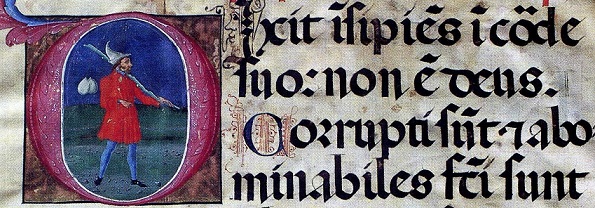 Dixit ĩsipiẽs ĩ cõde
suo: non ẽ deus.
Corrupti sũt ⁊ abo
minabiles fc̃i sunt